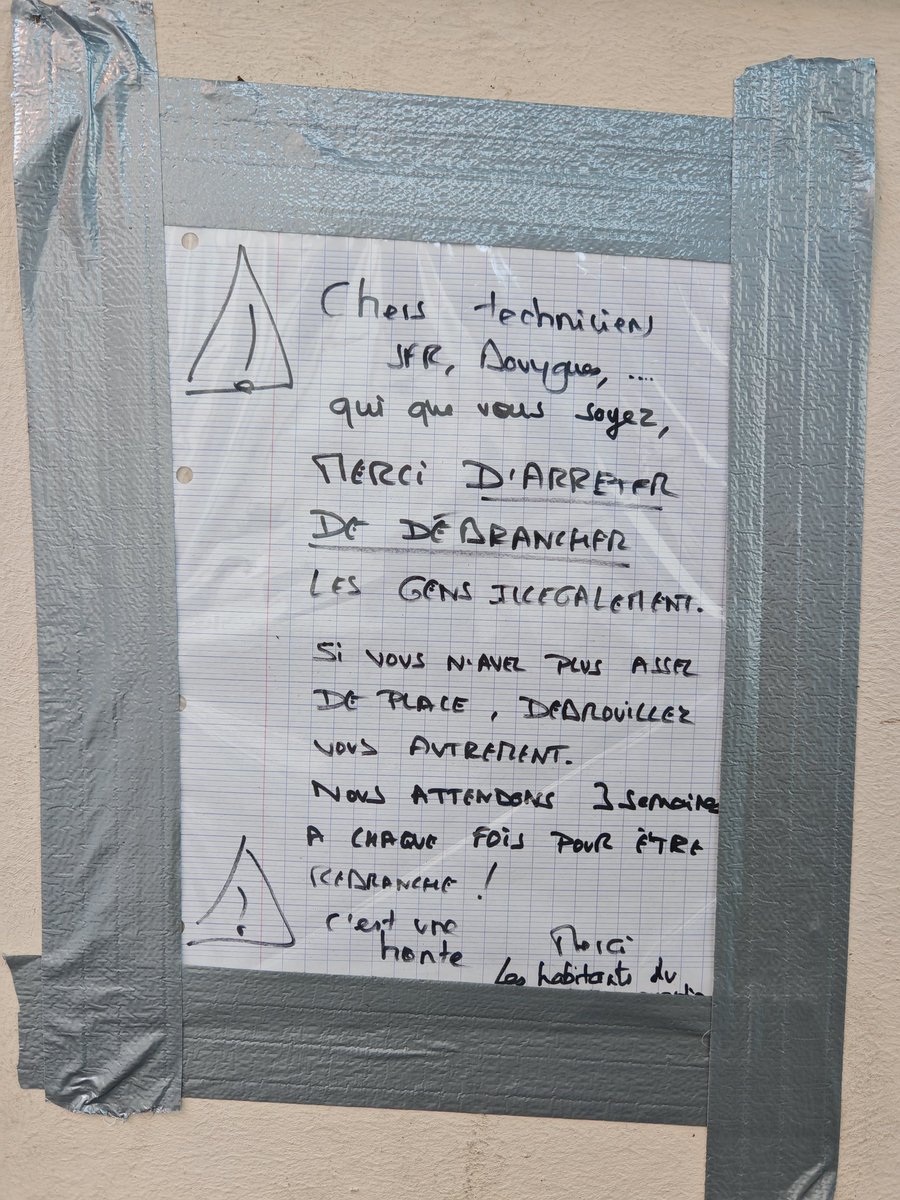 Chers techniciens
SFR, Bouygues, ....
qui que vous soyez,
MERCI D'ARRETER
DE DÉBRANCHER
LES GENS ILLEGALEMENT.
SI VOUS N'AVEZ PLUS ASSEZ
DE PLACE, DEBROUILLEZ
VOUS AUTREMENT.
NOUS ATTENDONS 3 semaines
A CHAQUE FOIS POUR ÊTRE
REBRANCHE !
c'est une
honte
Merci
Les habitants du